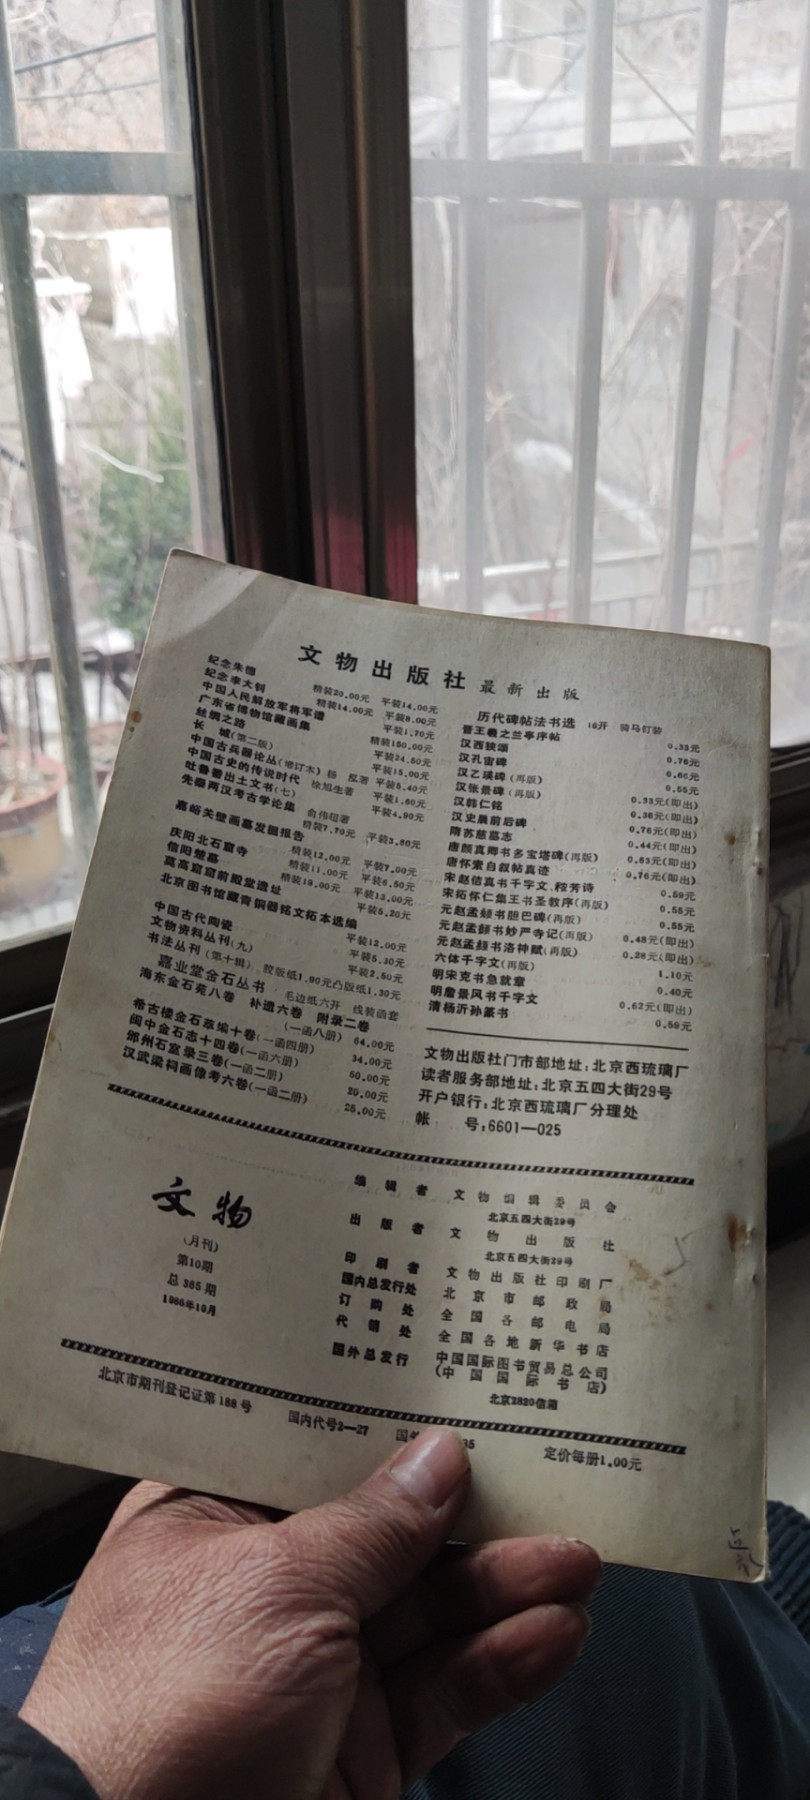 文物出版社 最新出版
纪念朱德 精装20.00元 平装14.00元
纪念李大钊 精装14.00元 平装8.00元
中国人民解放军将军谱 平装1.70元
广东省博物馆藏画集 精装150.00元
丝绸之路 平装24.50元
长 城(第二版) 平装15.00元
中国古兵器论丛(增订本) 杨 泓著 平装5.40元
中国古史的传说时代 徐旭生著 平装1.60元
吐鲁番出土文书(七) 平装4.90元
先秦两汉考古学论集 俞伟超著
精装7.70元 平装3.80元
嘉峪关壁画墓发掘报告
精装12.00元 平装7.00元
庆阳北石窟寺 精装11.00元 平装6.50元
信阳楚墓 精装19.00元 平装13.00元
莫高窟窟前殿堂遗址 平装5.20元
北京图书馆藏青铜器铭文拓本选编
平装12.00元
中国古代陶瓷 平装5.30元
文物资料丛刊(九) 平装2.50元
书法丛刊(第十辑) 胶版纸1.90元凸版纸1.30元
嘉业堂金石丛书 毛边纸六开 线装函套
海东金石苑八卷 补遗六卷 附录二卷
(一函八册) 64.00元
希古楼金石萃编十卷(一函四册) 34.00元
闽中金石志十四卷(一函六册) 50.00元
邠州石室录三卷(一函二册) 29.00元
汉武梁祠画像考六卷(一函二册) 25.00元
历代碑帖法书选 16开 骑马钉装
晋王羲之兰亭序帖 0.33元
汉西狭颂 0.76元
汉孔宙碑 0.66元
汉乙瑛碑(再版) 0.55元
汉张景碑(再版) 0.33元(即出)
汉韩仁铭 0.36元(即出)
汉史晨前后碑 0.76元(即出)
隋苏慈墓志 0.44元(即出)
唐颜真卿书多宝塔碑(再版) 0.63元(即出)
唐怀素自叙帖真迹 0.76元(即出)
宋赵佶真书千字文、秾芳诗 0.59元
宋拓怀仁集王书圣教序(再版) 0.55元
元赵孟頫书胆巴碑(再版) 0.55元
元赵孟頫书妙严寺记(再版) 0.48元(即出)
元赵孟頫书洛神赋(再版) 0.28元(即出)
六体千字文(再版) 1.10元
明宋克书急就章 0.40元
明詹景风书千字文 0.62元(即出)
清杨沂孙篆书 0.59元
文物出版社门市部地址:北京西琉璃厂
读者服务部地址:北京五四大街29号
开户银行:北京西琉璃厂分理处
帐 号:6601—025
文物
(月刊)
第10期
总365期
1986年10月
编辑者 文物编辑委员会
北京五四大街29号
出版者 文物出版社
北京五四大街29号
印刷者 文物出版社印刷厂
国内总发行处 北京市邮政局
订购处 全国各邮电局
代销处 全国各地新华书店
国外总发行 中国国际图书贸易总公司
(中国国际书店)
北京2820信箱
北京市期刊登记证第188号 国内代号2—27 定价每册1.00元